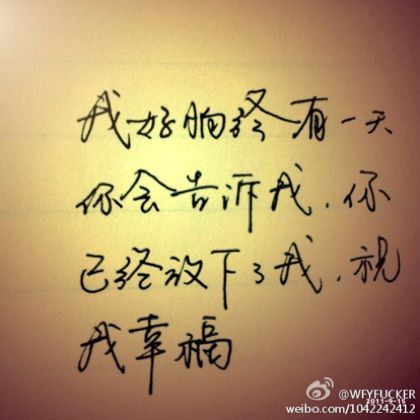 我好怕终有一天
你会告诉我，你
已经放下了我，祝
我幸福
@WFYFUCKER
2011-9-15
weibo.com/1042242412